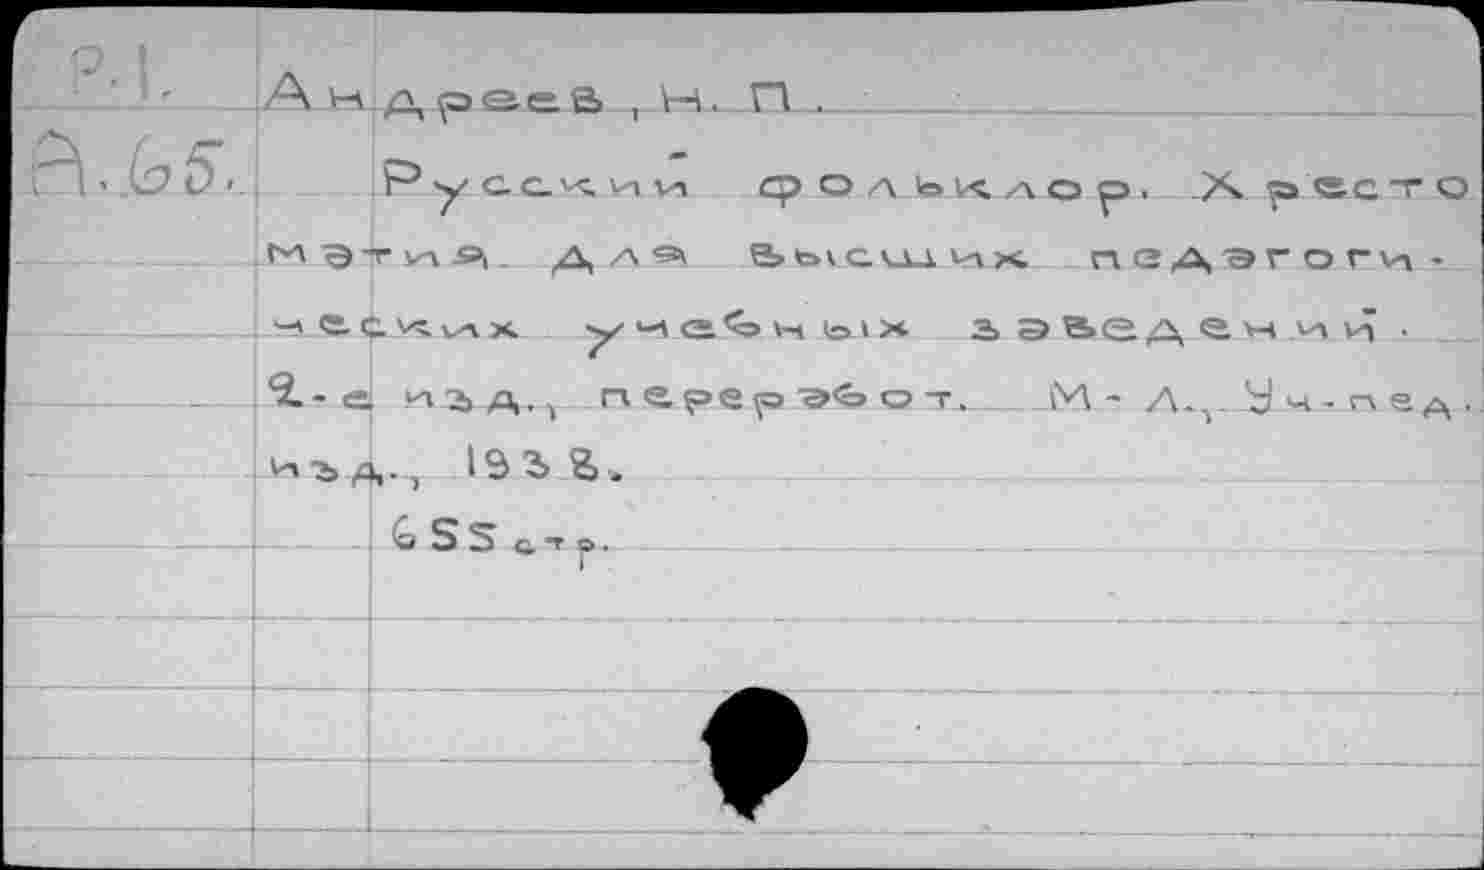 Р.I.
Андреев, Н. П.
А.65.
Русский фольклор. Хресто
матия для высших педагоги-
ческих учебных заведений.
2-е изд., переработ. М-Л., Уч-пед.
изд., 1938.
655 стр.